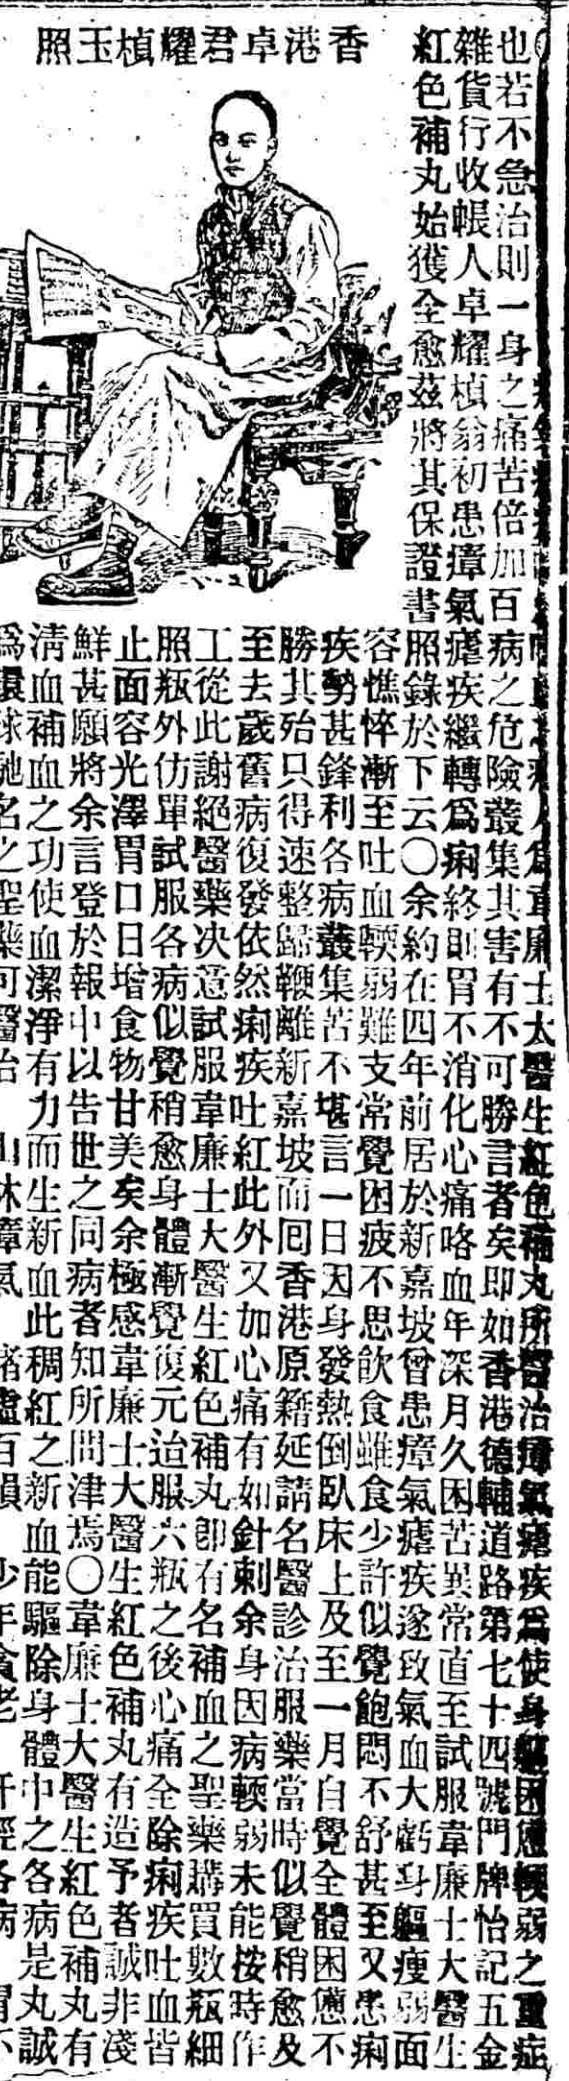 照玉楨耀君卓港香
醫生紅色補丸所醫治瘴氣瘧疾爲使身軀困憊輭弱之重症
也若不急治則一身之痛苦倍加百病之危險叢集其害有不可勝言者矣即如香港德輔道路第七十四號門牌怡記五金
雜貨行收帳人卓耀楨翁初患瘴氣瘧疾繼轉爲痢終則胃不消化心痛咯血年深月久困苦異常直至試服韋廉士大醫生
紅色補丸始獲全愈茲將其保證書照錄於下云○余約在四年前居於新嘉坡曾患瘴氣瘧疾遂致氣血大虧身軀瘦弱面
容憔悴漸至吐血輭弱難支常覺困疲不思飲食雖食少許似覺飽悶不舒甚至又患痢
疾勢甚鋒利各病叢集苦不堪言一日因身發熱倒臥床上及至一月自覺全體困憊不
勝其殆只得速整歸鞭離新嘉坡而囘香港原籍延請名醫診治服藥當時似覺稍愈及
至去歲舊病復發依然痢疾吐紅此外又加心痛有如針刺余身因病輭弱未能按時作
工從此謝絕醫藥决意試服韋廉士大醫生紅色補丸卽有名補血之聖藥購買數瓶細
照瓶外仿單試服各病似覺稍愈身體漸覺復元迨服六瓶之後心痛全除痢疾吐血皆
止面容光澤胃口日增食物甘美矣余極感韋廉士大醫生紅色補丸有造予者誠非淺
鮮甚願將余言登於報中以告世之同病者知所問津焉○韋廉士大醫生紅色補丸有
清血補血之功使血潔淨有力而生新血此稠紅之新血能驅除身體中之各病是丸誠
爲環球馳名之聖藥可醫治